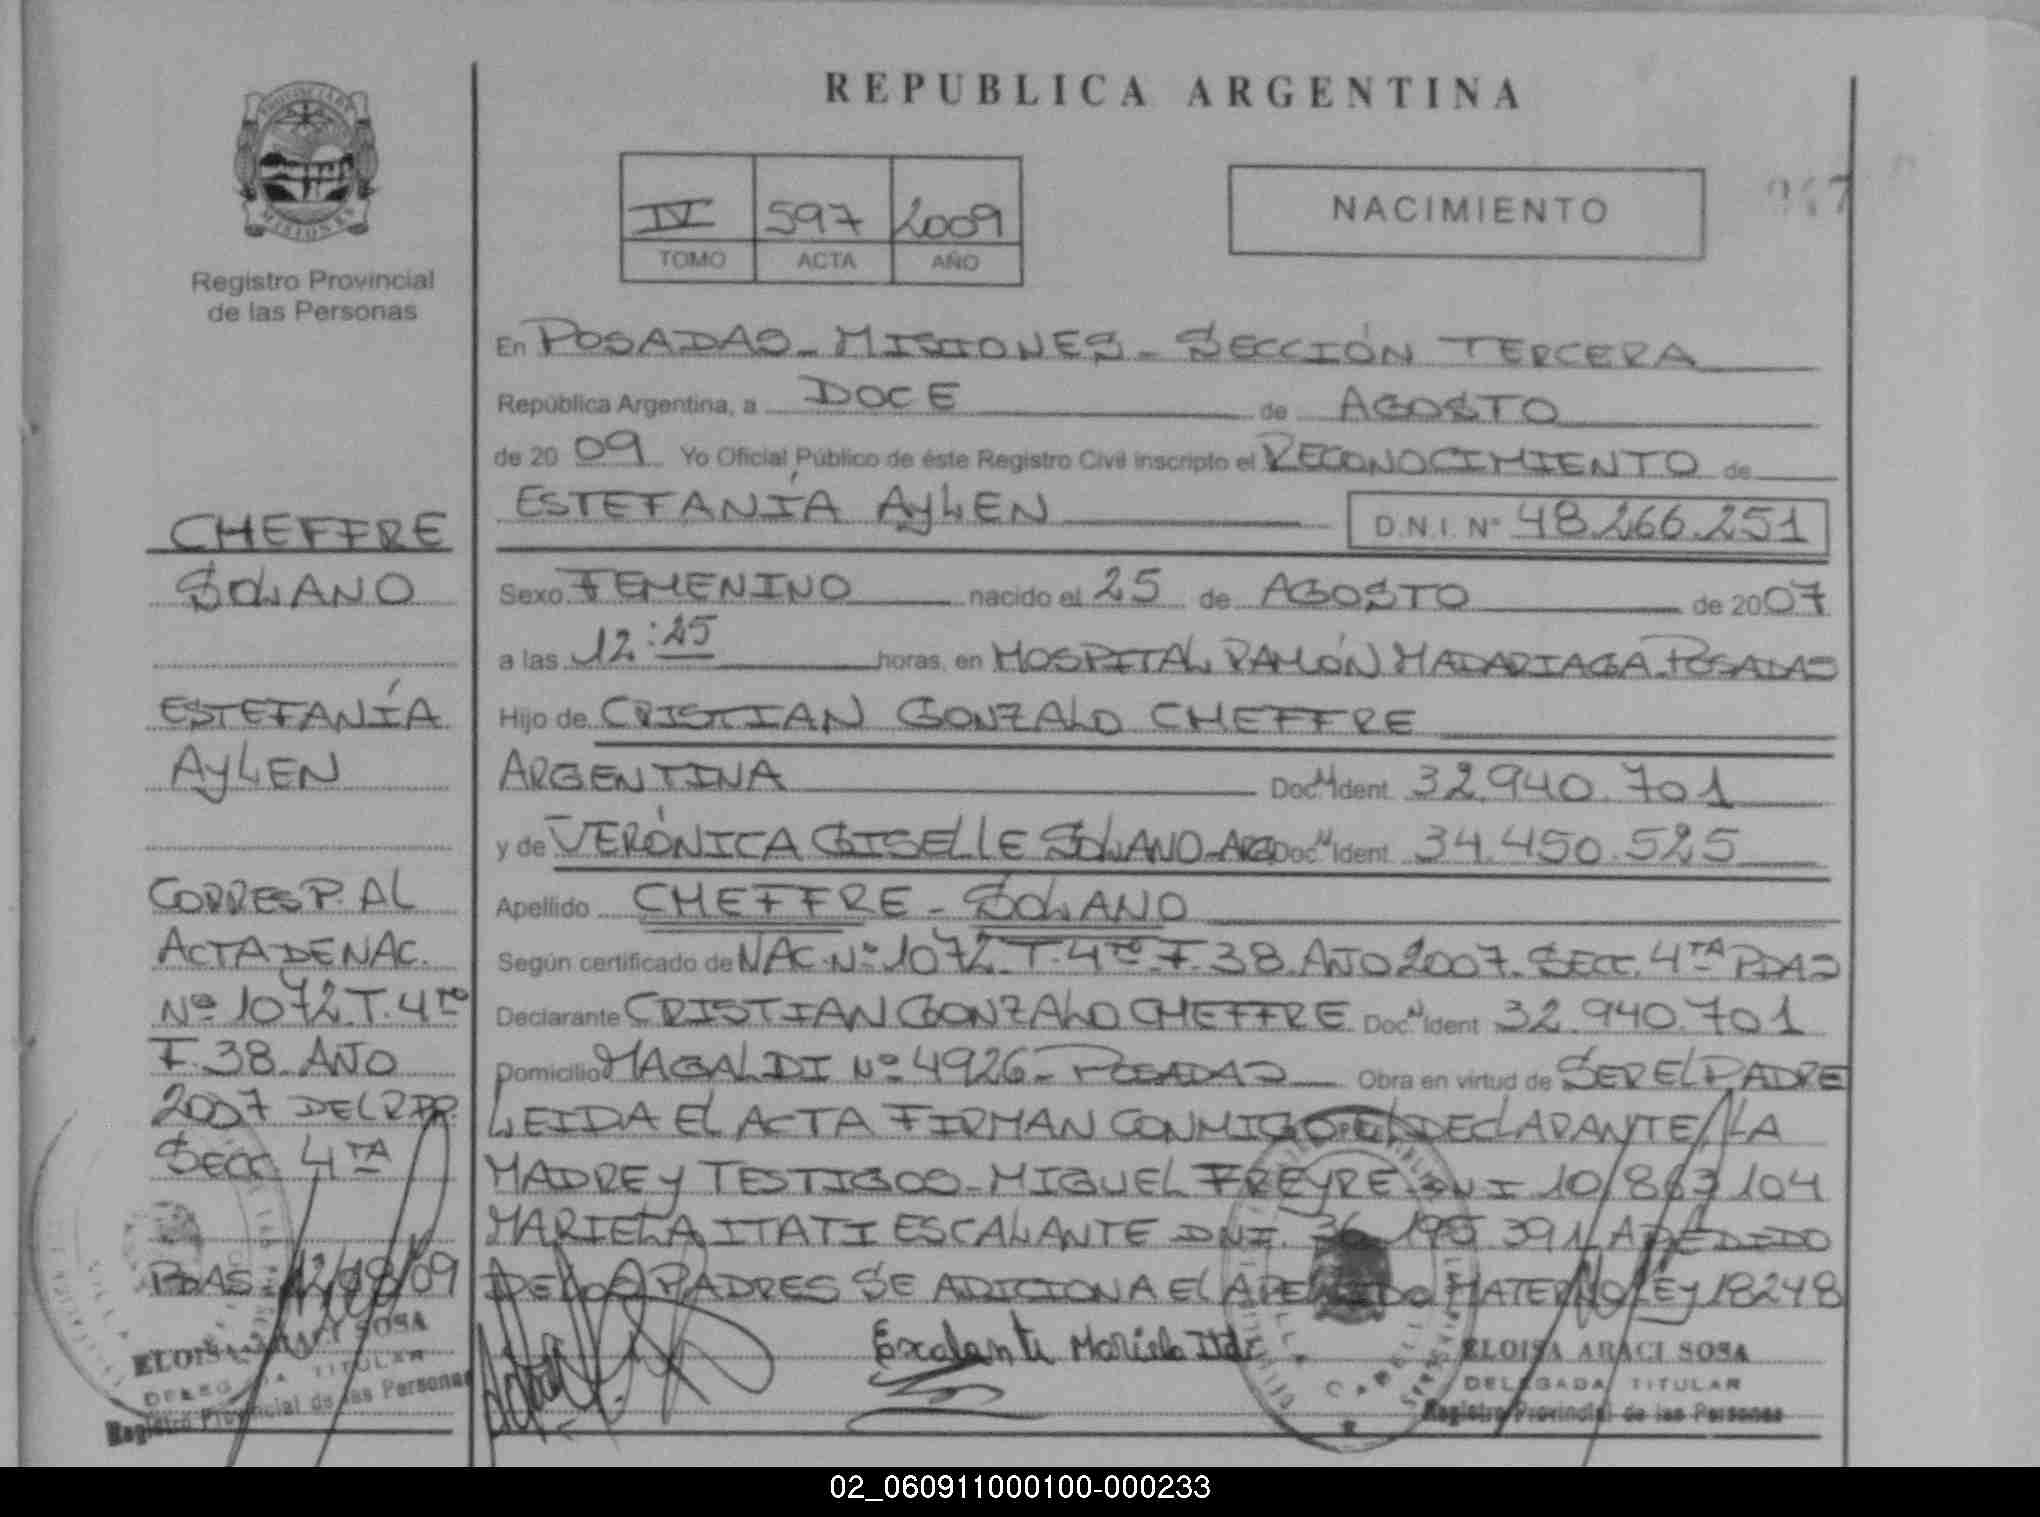 REPUBLICA ARGENTINA
PROVINCIA DE
MISIONES
Registro Provincial
de las Personas
IV 597 2009
TOMO ACTA AÑO
NACIMIENTO
En POSADAS - MISIONES - SECCIÓN TERCERA
República Argentina, a DOCE de AGOSTO
de 20 09 Yo Oficial Público de éste Registro Civil inscripto el RECONOCIMIENTO de
ESTEFANÍA AYLEN D.N.I. Nº 48.266.251
Sexo FEMENINO nacido el 25 de AGOSTO de 2007
a las 12:25 horas, en HOSPITAL RAMÓN MADARIAGA-POSADAS
Hijo de CRISTIAN GONZALO CHEFFRE
ARGENTINA Doc. N Ident. 32.940.701
y de VERÓNICA GISELLE SOLANO-ARG Doc N Ident. 34.450.525
Apellido CHEFFRE - SOLANO
Según certificado de NAC. Nº 1072. T. 4to. F. 38. AÑO 2007. SECC. 4TA PDAS
Declarante CRISTIAN GONZALO CHEFFRE Doc. N Ident 32.940.701
Domicilio MAGALDI Nº 4926 - POSADAS Obra en virtud de SER EL PADRE
LEIDA EL ACTA FIRMAN CONMIGO EL DECLARANTE/LA
MADRE Y TESTIGOS - MIGUEL FREYRE DNI 10/863/104
MARIELA ITATI ESCALANTE DNI. 36.195.391 A PEDIDO
DE LOS PADRES SE ADICIONA EL APELLIDO MATERNO LEY 18248
Escalante Mariela Itati
ELOISA ARACI SOSA
DELEGADA TITULAR
Registro Provincial de las Personas
CHEFFRE
SOLANO
ESTEFANÍA
AYLEN
CORRESP. AL
ACTA DE NAC.
Nº 1072. T. 4to
F. 38. AÑO
2007 DEL RPP.
SECC. 4TA
PDAS. 12/08/09
ELOISA ARACI SOSA
DELEGADA TITULAR
Registro Provincial de las Personas
02_060911000100-000233